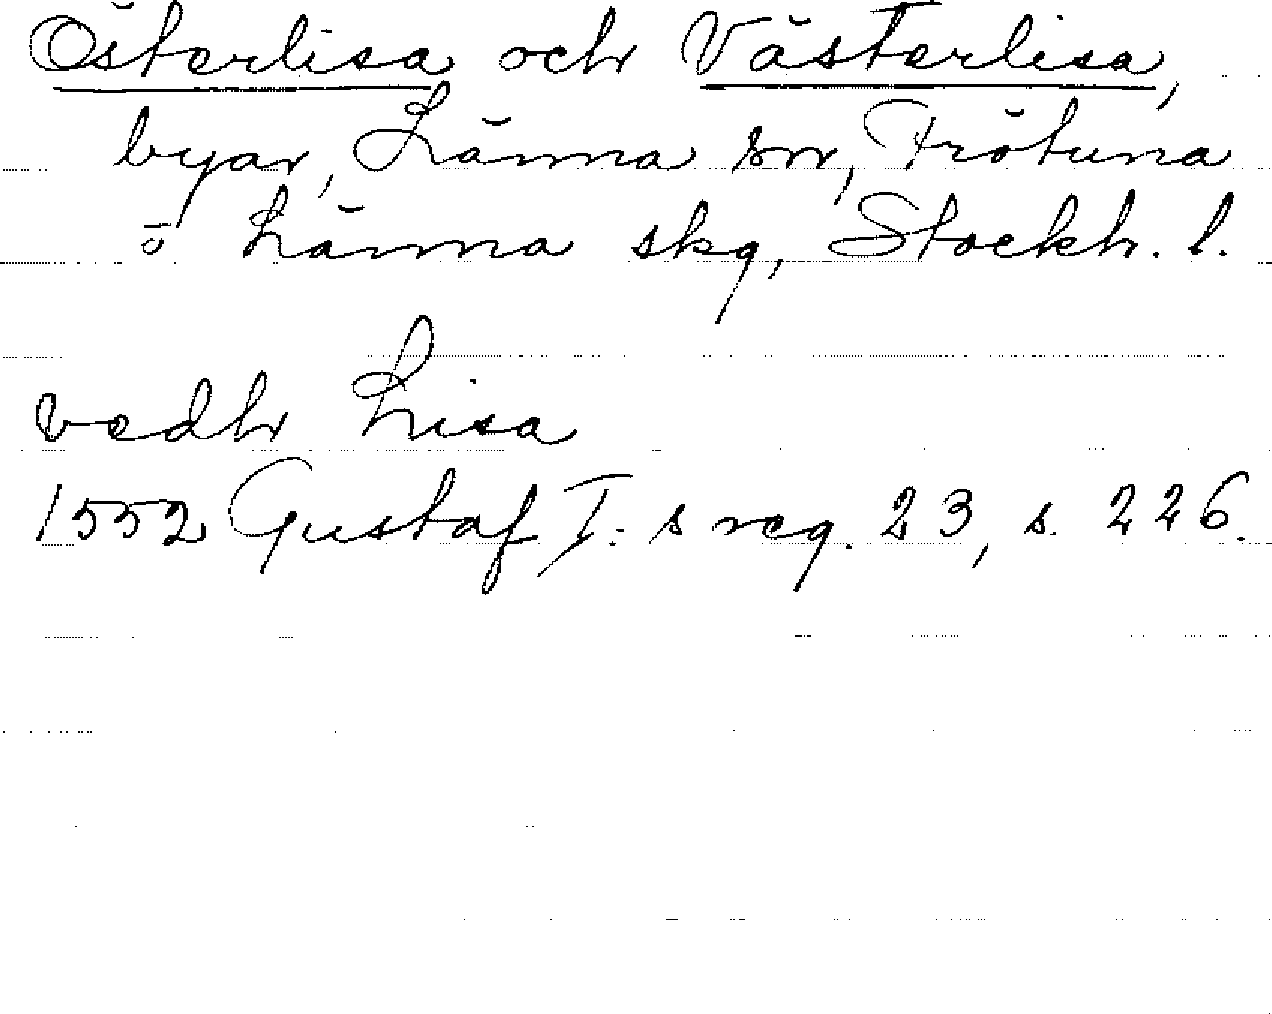 Österlisa och Västerlisa,
byar, Länna sn, Frötuna
o Länna skg, Stockh. l.
vedh Lisa
1552 Gustaf I:s reg. 23, s. 226.